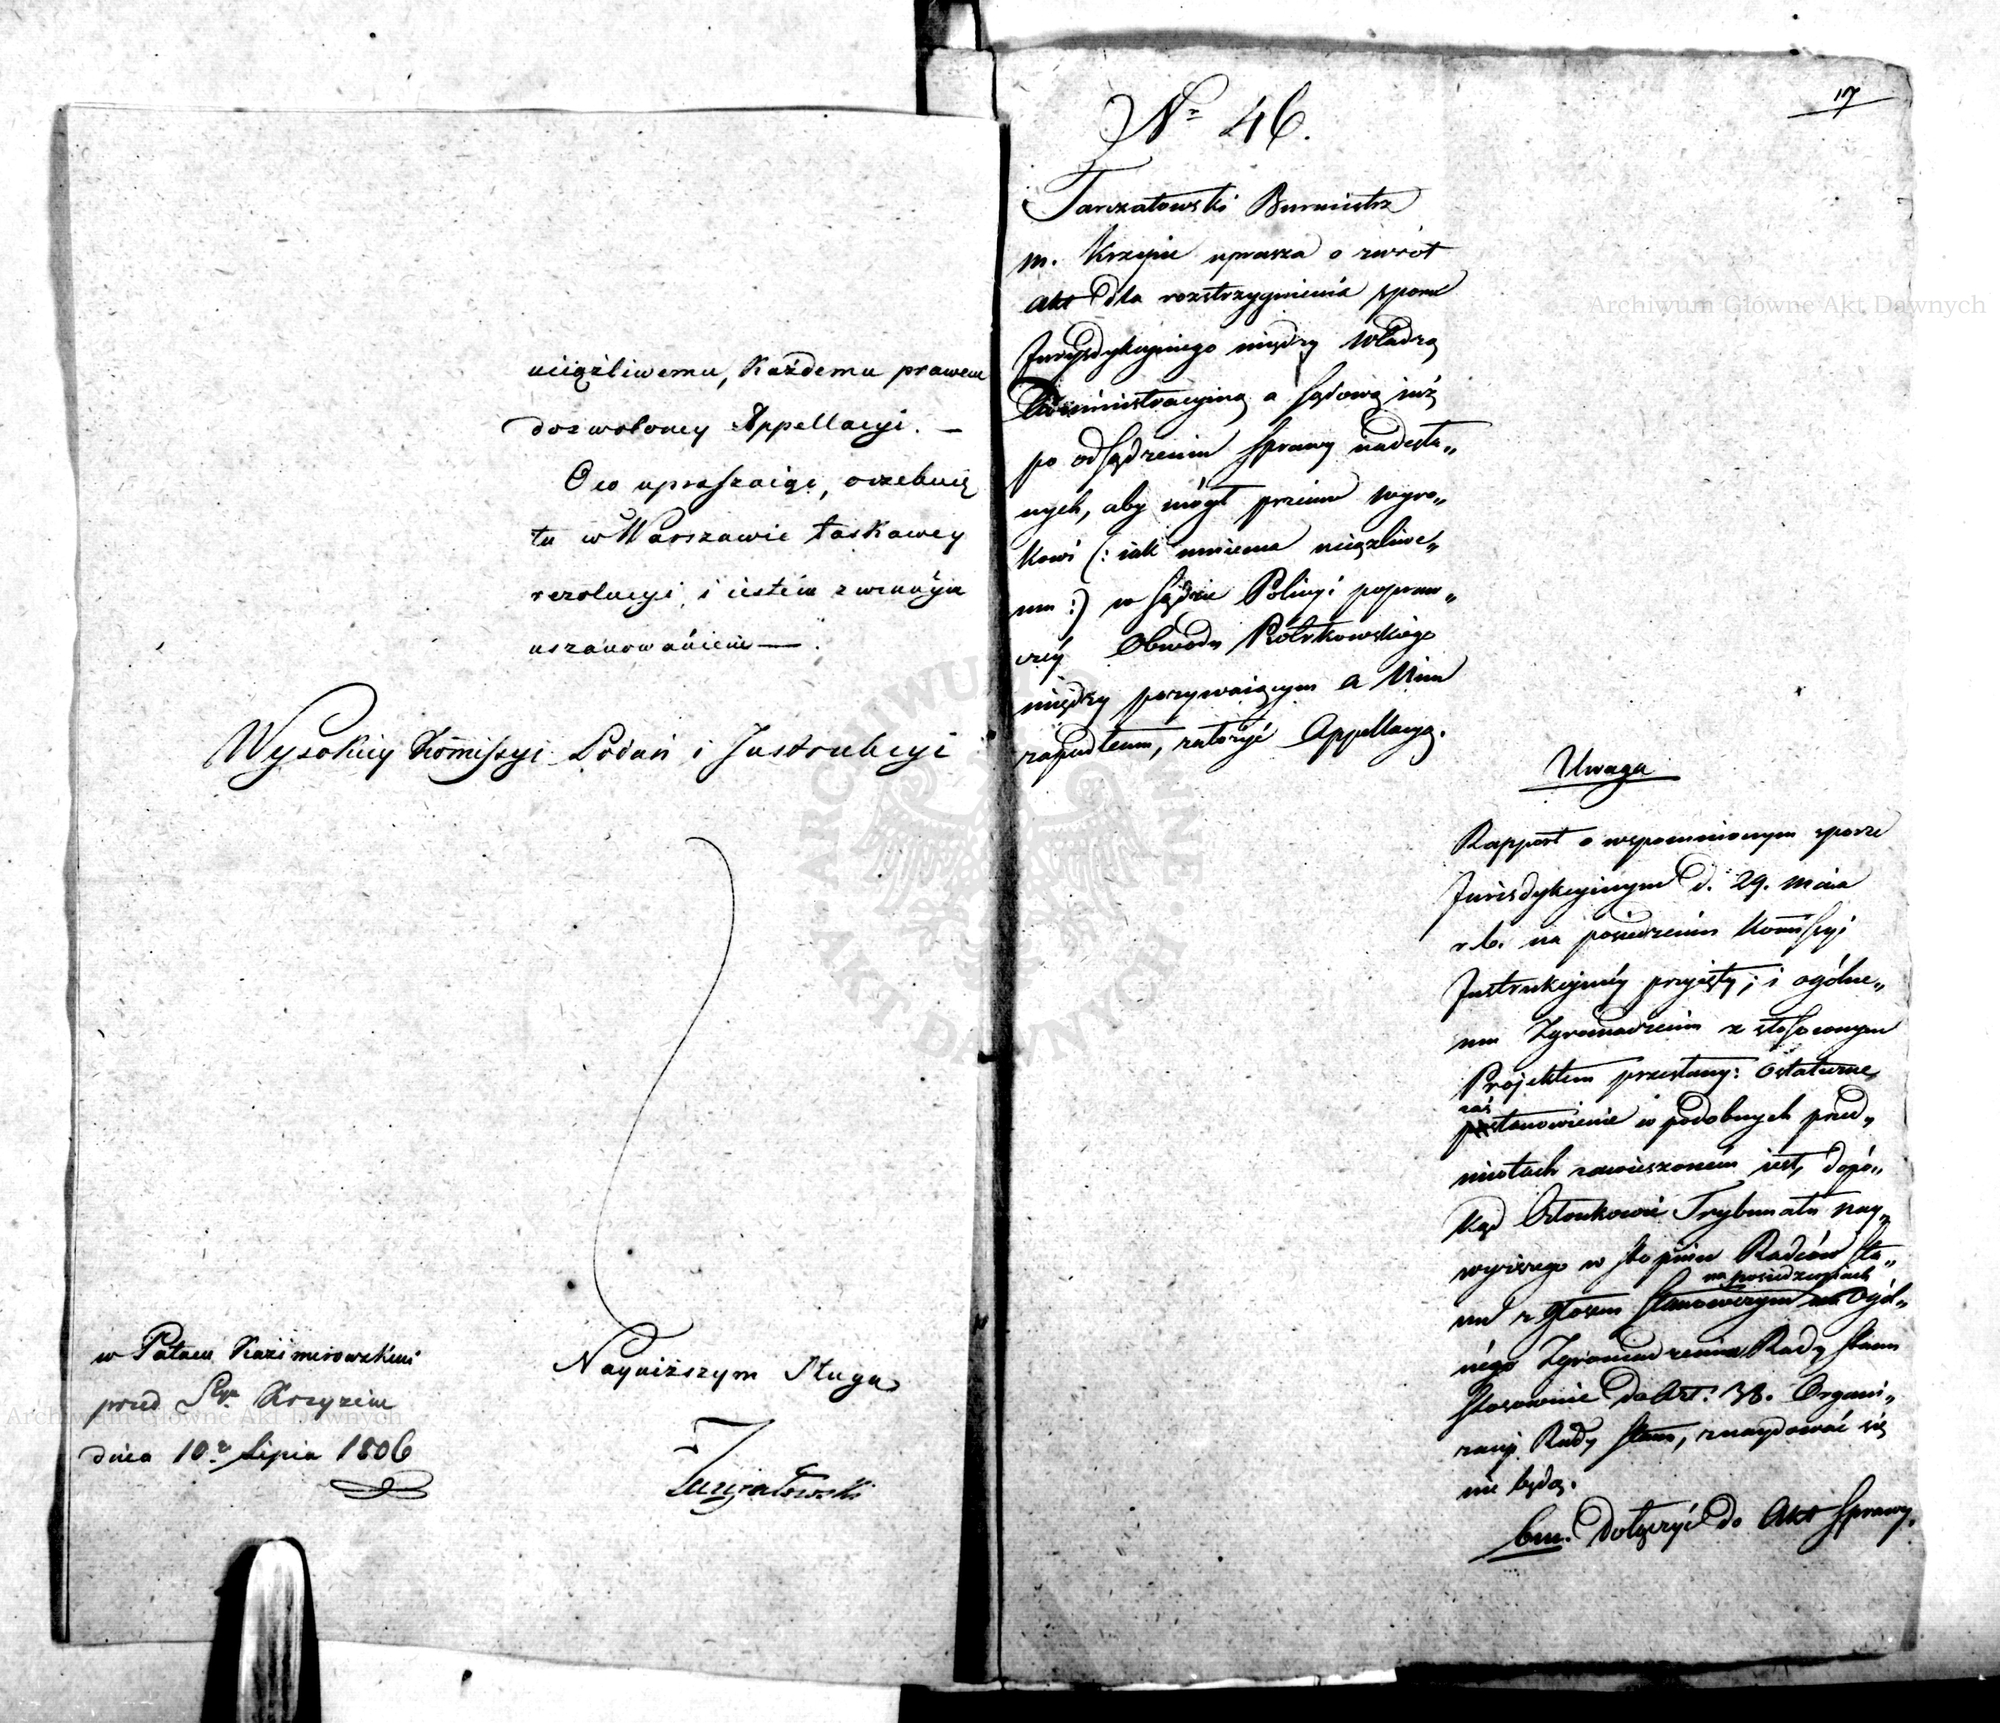 uciążliwemu, każdemu prawem
dozwoloney Appellacyi. —
O co upraszaiąc, oczekuię
tu w Warszawie łaskawey
rezolucyi, i iestem z winnym
uszanowaniem —
Wysokiey Kommissyi Podań i Instrukcyi
w Pałacu Kazimirowskim
przed Stym Krzyżem
dnia 10. Lipia 1806
Nayniższym Sługą
Tarzałowski
17
Nr 46.
Tarczałowski Burmistrz
m. Krzepic uprasza o zwrót
Akt dla rozstrzygnienia sporu
Jurysdykcyinego między Władzą
Administracyiną a Sądową iuż
po odsądzeniu sprawy nadesła„
nych, aby mógł przeciw wyro„
kowi (: iak mniema uciążliwe„
mu :) w Sądzie Policyi popraw„
czéy Obwodu Piotrkowskiego
między pozywaiącym a Nim
zapadłemu, założyć Appellacyą.
Uwaga
Rapport o wspomnionym sporze
Jurisdykcyinym d. 29. Maia
r. b. na posiedzeniu Kommissyi
Instrukcyinéy przyięty; i ogólne„
mu Zgromadzeniu z stosownym
Projektem przesłany: Ostateczne
zaś
postanowienie w podobnych przed„
miotach zawieszoném iest, dopó„
kąd Członkowie Trybunału nay„
wyższego w stopniu Radców Sta„
na posiedzeniach
nu z głosem stanowczym Ogól„
nego Zgromadzenia Rady Stanu
stosownie do Art: 38. Organi„
zacyi Rady Stanu, znaydować się
nie będą.
bm. dołączyć do Akt Sprawy.
Archiwum Główne Akt Dawnych
Archiwum Główne Akt Dawnych
ARCHIWUM GŁÓWNE AKT DAWNYCH